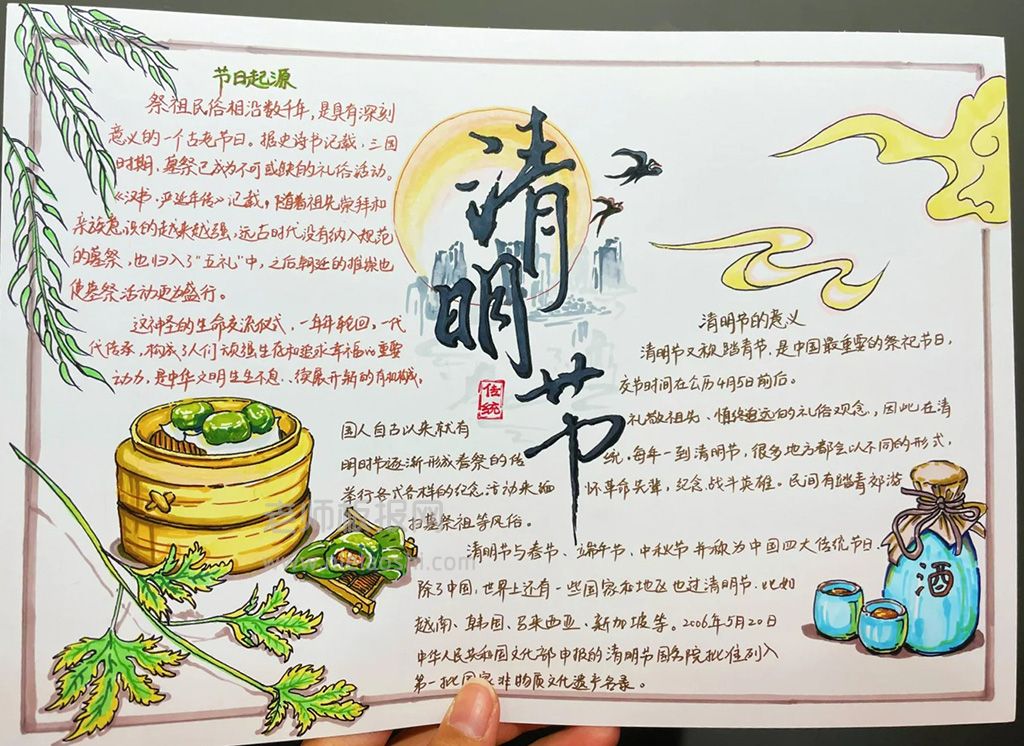 节日起源
祭祖民俗相沿数千年，是具有深刻
意义的一个古老节日。据史诗书记载，三国
时期，墓祭已成为不可或缺的礼俗活动。
《汉书·严延年传》记载，随着祖先崇拜和
亲族意识的越来越强，远古时代没有纳入规范
的墓祭，也归入了“五礼”中，之后朝廷的推崇也
使墓祭活动更为盛行。
这种神圣的生命交流仪式，一年年轮回，一代
代传承，构成了人们顽强生存和追求幸福的重要
动力，是中华文明生生不息、续展开新的有机构成。
清
明
节
传统
清明节的意义
清明节又称踏青节，是中国最重要的祭祀节日，
交节时间在公历4月5日前后。
国人自古以来就有 礼敬祖先、慎终追远的礼俗观念，因此在清
明时节逐渐形成春祭的传 统。每年一到清明节，很多地方都会以不同的形式，
举行各式各样的纪念活动来缅 怀革命先辈，纪念战斗英雄。民间有踏青郊游
扫墓祭祖等风俗。
清明节与春节、端午节、中秋节并称为中国四大传统节日。
除了中国，世界上还有一些国家和地区也过清明节，比如
越南、韩国、马来西亚、新加坡等。2006年5月20日
中华人民共和国文化部申报的清明节国务院批准列入
第一批国家非物质文化遗产名录。
酒
老师板报网